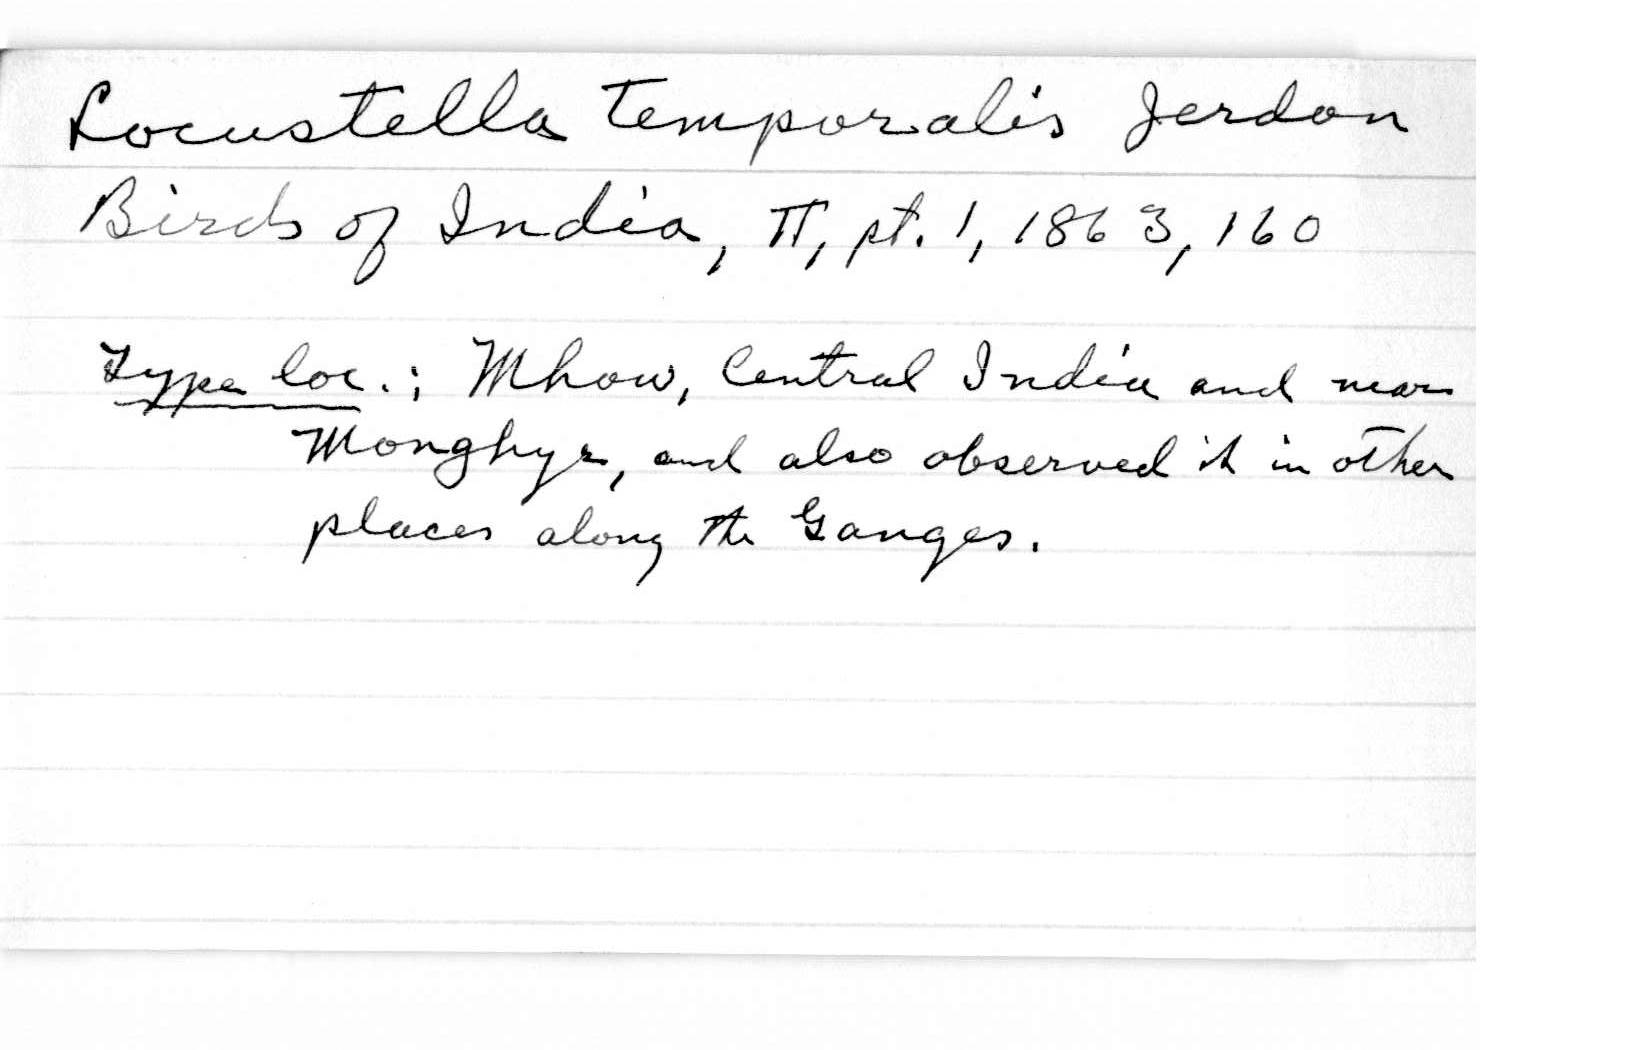 Locustella temporalis Jerdon
Birds of India, II, pt. 1, 1863, 160
Type loc.: Mhow, Central India and near
Monghyr, and also observed it in other
places along the Ganges.